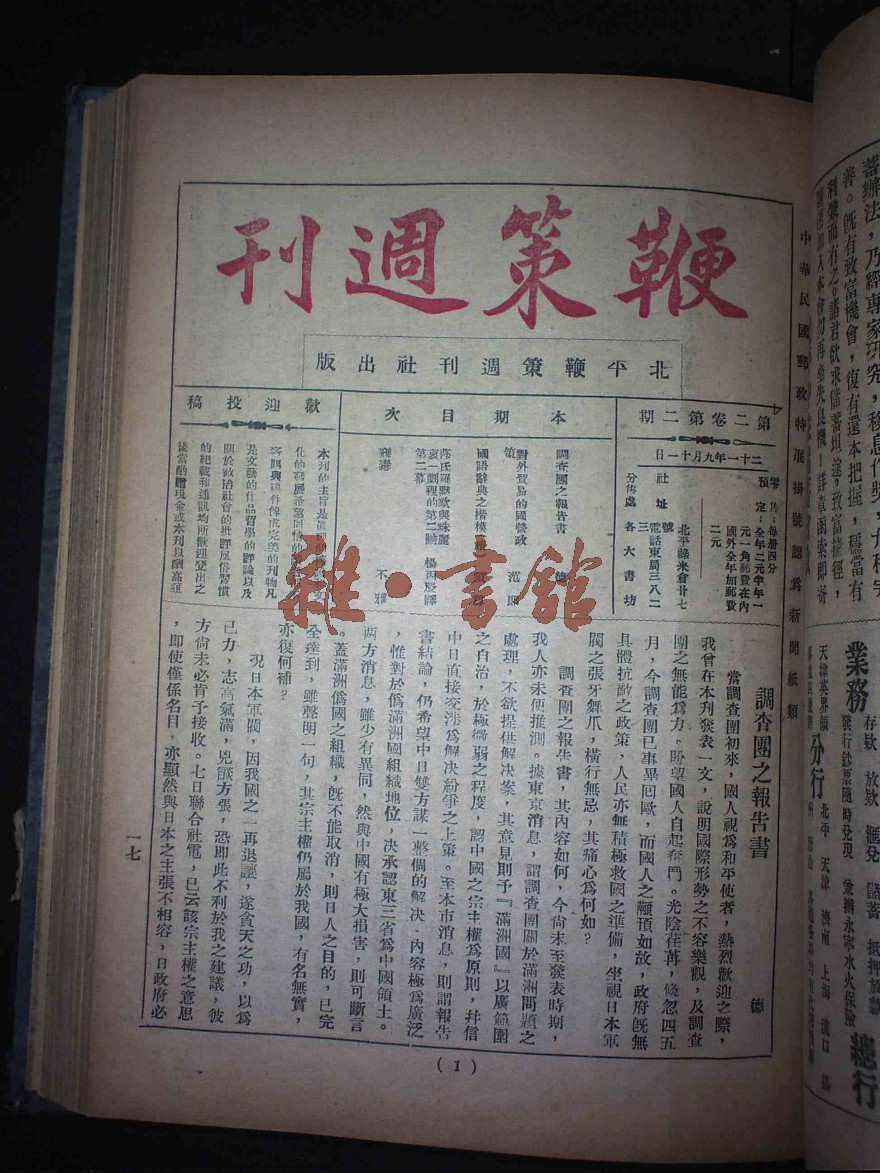 中華民國郵政特准掛號認爲新聞紙類
鞭策週刊
北平鞭策週刊社出版
第二卷第二期
二十一年九月十一日
零售：每册四分
預定：全年二元半年一
元一角郵費在內
國外全年加郵費
二元
社址 北平祿米倉廿七
號
電話東局三八二
三
分售處 各大書坊
本期目次
調查團之報告書 德
對外貿易的國營政
策 范
國語辭典之楷模
莎氏羅蜜歐與珠麗
哀一劇裡的第二勵 楊丙辰譯
第二幕
不雅
歡迎投稿
本刊的主旨是
化的發展希望同情的
客們與這件俾成完美的刊物凡
是文藝的作品哲學的評論以及
關於政治社會的批評風俗習慣
的記載和通訊均所歡迎登出之
後當酌贈現金或本刊以酬高誼
調查團之報告書
德
當調查團初來，國人視爲和平使者，熱烈歡迎之際，
我曾在本刊發表一文，說明國際形勢之不容樂觀，及調查
團之無能爲力。盼望國人自起奮鬥。光陰荏苒，倏忽四五
月，今調查團已事畢回歐，而國人之頹預如故，政府旣無
具體抗敵之政策，人民亦無積極救國之準備，坐視日本軍
閥之張牙舞爪，橫行無忌，其痛心爲何如？
調查團之報告書，其內容如何，今尙未至發表時期，
我人亦未便推測。據東京消息，謂調查團關於滿洲問題之
處理，不欲提供解決案，其意見則予『滿洲國』以廣範圍
之自治，於極微弱之程度，認中國之宗主權爲原則，幷信
中日直接交涉爲解決紛爭之上策。至本市消息，則謂報告
書結論，仍希望中日雙方謀一整個的解決，內容極爲廣泛
，惟對於僞滿洲國組織地位，決承認東三省爲中國領土。
兩方消息，雖少有異同，然與中國有極大損害，則可斷言
。蓋滿洲僞國之組織，旣不能取消，則日人之目的，已完
全達到，雖聲明一句，其宗主權仍屬於我國，有名無實，
亦復何補？
況日本軍閥，因我國之一再退讓，遂貪天之功，以爲
己力，志高氣滿，兇燄方張，恐卽此不利於我之建議，彼
方尙未必肯予接收。七日聯合社電，已云該宗主權之意思
，卽使僅係名目，亦顯然與日本之主張不相容，日政府必
一七
(1)
蓄辦法，乃經專家研究，移息作獎，才利
善。旣有致富機會，復有還本把握，穩當有
利兼而有之。諸君欲求儲蓄坦途，致富捷徑，
請速加入本會勿再坐失良機！詳章函索卽寄
業務
存欵 放欵 滙兌 儲蓄 抵押放欵
發行鈔票隨時兌現 兼辦永寧水火保險
總行
天津英界領
分行
北平 天津 濟南 上海 漢口
雜·書館